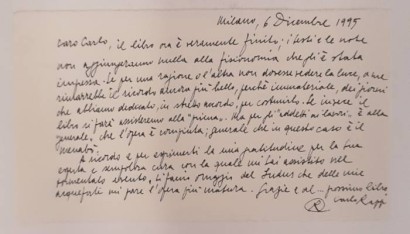 Milano, 6 Dicembre 1995
Caro Carlo, il libro ora è veramente finito; i testi e le note
non aggiungeranno nulla alla fisionomia che gli è stata
impressa. Se per una ragione o l'altra non dovesse vedere la luce, a me
rimarrebbe il ricordo ancora più bello, perché immateriale, dei giorni
che abbiamo dedicato, in stretto accordo, per costruirlo. Se invece il
libro si farà assisteremo alla "prima". Ma per gli "addetti ai lavori", è alla
generale, che l'opera è compiuta; generale che in questo caso è il
"menabò".
A ricordo e per esprimerti la mia gratitudine per la tua
e scrupolosa cura con la quale mi hai assistito nel
tormentato evento, ti faccio omaggio del che delle mie
acqueforti mi pare l'opera più matura. Grazie e al prossimo libro
Carlo
R